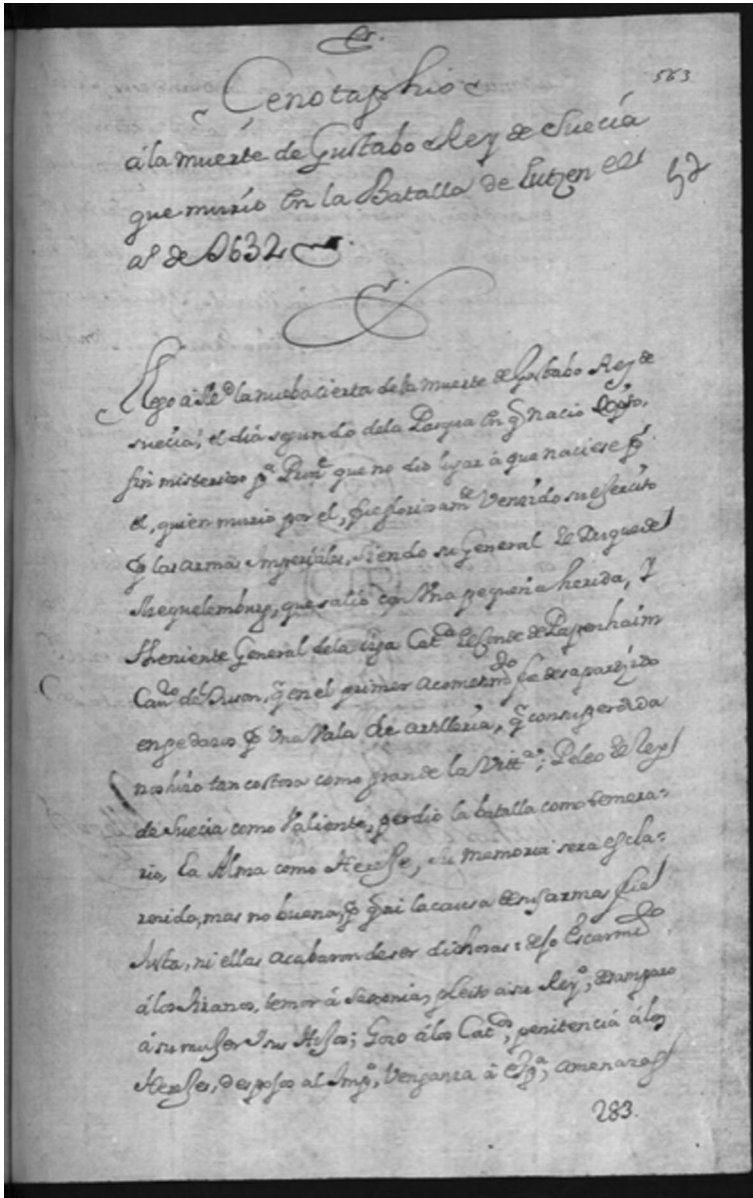 563
Cenotaphio
á la muerte de Gustabo Rey de Suecía
que murío en la Batalla de Lutzen el
aº de 1632
Llego a Mᵈ la nueba cierta de la muerte de Gustabo Rey de
suecia, el diá segundo de la Pasqua en q̃ nacio
sin misterioso que no dio lugar à que naciese pᵒ
el, quien murio por el, fue gloriosamᵗᵉ Venzido su exercito
p̱ las armas Imperiales, siendo su General el Duque de
Mequelemburg, que salio con Vna pequeña herida, y
Theniente General de la liga Catᶜᵃ el Conde de Papenhaim
Cauᵒ del Tuson, q̃ en el primer acometimᵗᵒ fue desaparezido
en pedazos p̱ Vna Vala de artilleria, q̃ con su perdida
nos hizo tan costosa como grande la Vittᵃ; Peleo el Rey
de Suecia como Valiente, perdio la batalla como temera-
rio, la Alma como Hereje, su memoria sera escla-
recida, mas no buena, p̱ q̃ ni la causa de sus armas fue
Justa, ni ellas acabaron de ser dichosas: dejo Escarmᵗᵒ
á los tiranos, temor á pleito a su Reyⁿᵒ, desamparo
á su mujer y sus Hijos; Gozo á los Catᶜᵒˢ, penitencia á los
Herejes, despojos al Impᵒ, Venganza à Espᵃ, amenazas
283.